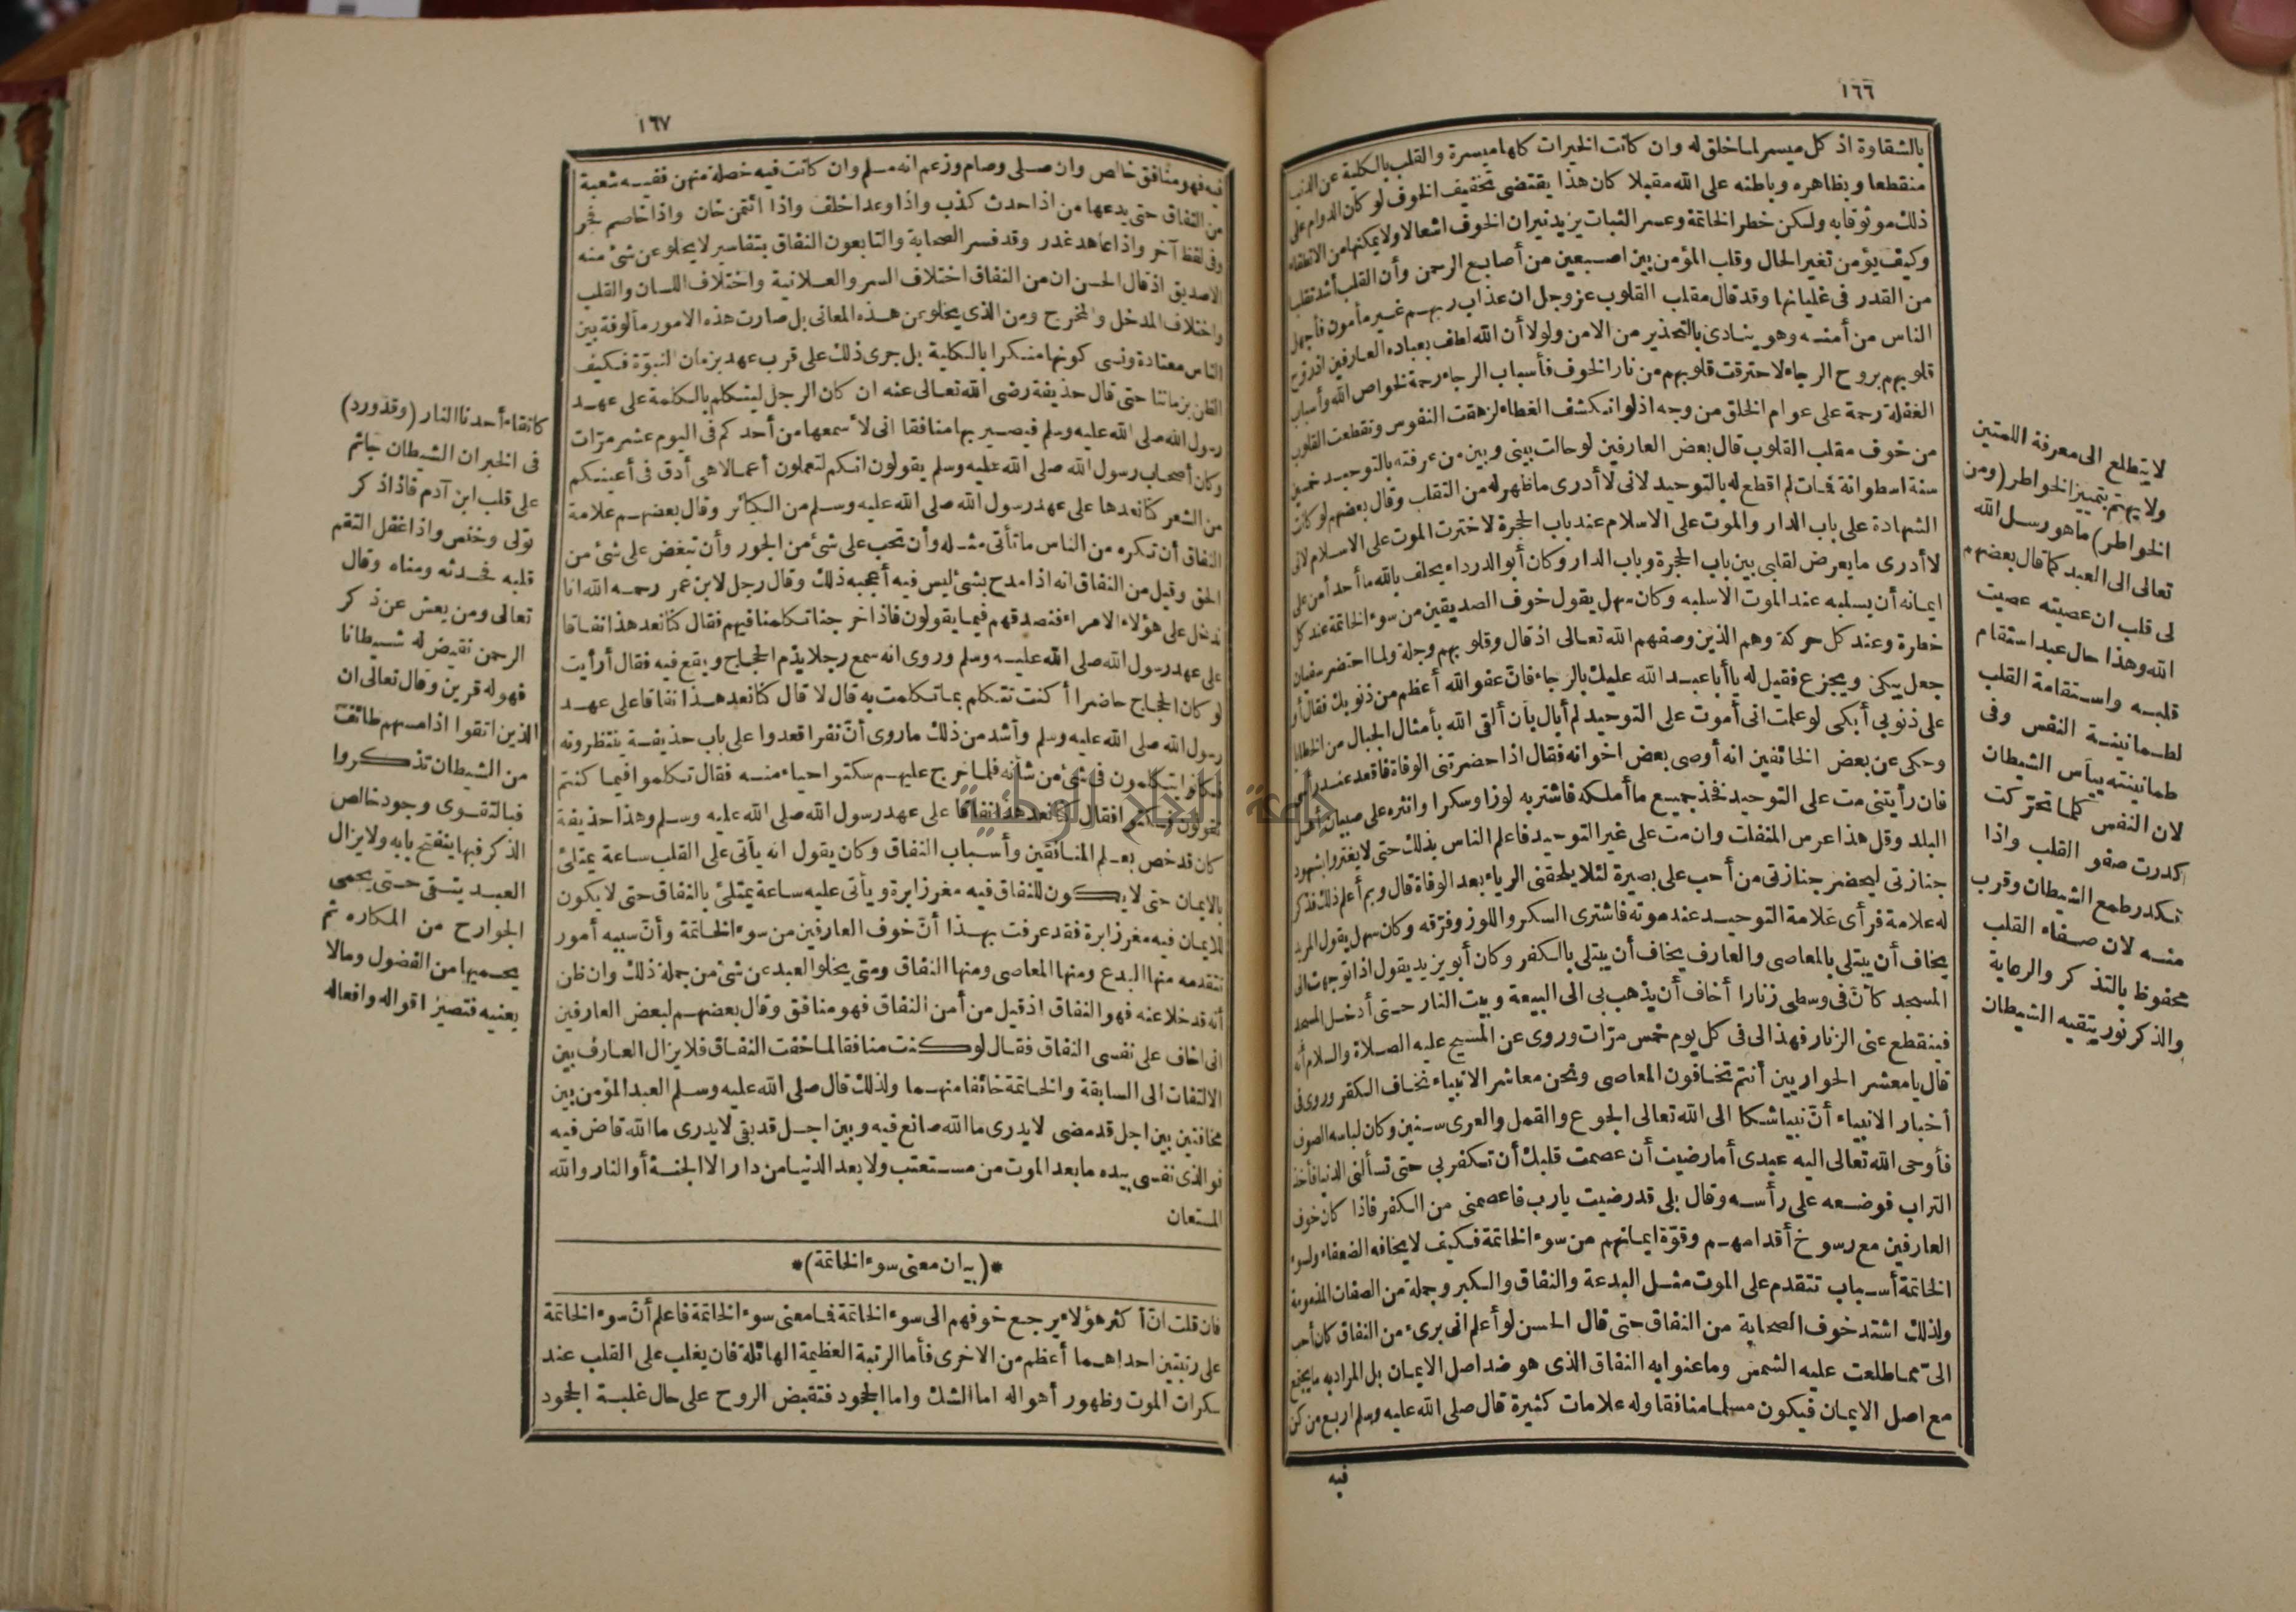 ١٦٦
بالشقاوة اذ كل ميسر لما خلق له وان كانت الخيرات كلها ميسرة والقلب بالكلية عن الدنيا
منقطعا وبظاهره وباطنه على الله مقبلا كان هذا يقتضى تخفيف الخوف لو كان الدوام على
ذلك موثوقا به ولكن خطر الخاتمة وعسر الثبات يزيد نيران الخوف اشعالا ولا يمكنها من الانطفاء
وكيف يؤمن تغير الحال وقلب المؤمن بين اصبعين من أصابع الرحمن وأن القلب أشد تقلبا
من القدر فى غليانها وقد قال مقلب القلوب عز وجل ان عذاب ربهم غير مأمون فأجهل
الناس من أمنه وهو ينادى بالتحذير من الامن ولولا أن الله لطف بعباده العارفين اذ روح
قلوبهم بروح الرجاء لاحترقت قلوبهم من نار الخوف فأسباب الرجاء رحمة لخواص الله وأسباب
الغفلة رحمة على عوام الخلق من وجه اذ لو انكشف الغطاء لزهقت النفوس وتقطعت القلوب
من خوف مقلب القلوب قال بعض العارفين لو حالت بينى وبين من عرفته بالتوحيد خمسين
سنة اسطوانة فمات لم اقطع له بالتوحيد لانى لا أدرى ما ظهر له من التقلب وقال بعضهم لو كانت
الشهادة على باب الدار والموت على الاسلام عند باب الحجرة لاخترت الموت على الاسلام لانى
لا أدرى ما يعرض لقلبى بين باب الحجرة وباب الدار وكان أبو الدرداء يحلف بالله ما أحد أمن على
ايمانه أن يسلبه عند الموت الا سلبه وكان سهل يقول خوف الصديقين من سوء الخاتمة عند كل
خطرة وعند كل حركة وهم الذين وصفهم الله تعالى اذ قال وقلوبهم وجلة ولما احتضر سفيان
جعل يبكى ويجزع فقيل له يا أبا عبد الله عليك بالرجاء فان عفو الله أعظم من ذنوبك فقال أو
على ذنوبى أبكى لو علمت انى أموت على التوحيد لم أبال بأن ألقى الله بأمثال الجبال من الخطايا
وحكى عن بعض الخائفين انه أوصى بعض اخوانه فقال اذا حضرتنى الوفاة فاقعد عند رأسى
فان رأيتنى مت على التوحيد فخذ جميع ما أملكه فاشتر به لوزا وسكرا وانثره على صبيان أهل
البلد وقل هذا عرس المنفلت وان مت على غير التوحيد فاعلم الناس بذلك حتى لا يغتروا بشهود
جنازتى ليحضر جنازتى من أحب على بصيرة لئلا يلحقنى الرياء بعد الوفاة قال وبم أعلم ذلك فذكر
له علامة فرأى علامة التوحيد عند موته فاشترى السكر واللوز وفرّقه وكان سهل يقول المريد
يخاف أن يبتلى بالمعاصى والعارف يخاف أن يبتلى بالكفر وكان أبو يزيد يقول اذا توجهت الى
المسجد كأنّ فى وسطى زنارا أخاف أن يذهب بى الى البيعة وبيت النار حتى أدخل المسجد
فينقطع عنى الزنار فهذا لى فى كل يوم خمس مرّات وروى عن المسيح عليه الصلاة والسلام أنه
قال يا معشر الحواريين أنتم تخافون المعاصى ونحن معاشر الانبياء نخاف الكفر وروى فى
أخبار الانبياء أنّ نبيا شكا الى الله تعالى الجوع والقمل والعرى سنين وكان لباسه الصوف
فأوحى الله تعالى اليه عبدى أما رضيت أن عصمت قلبك أن تكفر بى حتى تسألنى الدنيا فأخذ
التراب فوضعه على رأسه وقال بلى قد رضيت يا رب فاعصمنى من الكفر فاذا كان خوف
العارفين مع رسوخ أقدامهم وقوّة ايمانهم من سوء الخاتمة فكيف لا يخافه الضعفاء ولسوء
الخاتمة أسباب تتقدم على الموت مثل البدعة والنفاق والكبر وجملة من الصفات المذمومة
ولذلك اشتد خوف الصحابة من النفاق حتى قال الحسن لو أعلم انى برىء من النفاق كان أحب
الىّ مما طلعت عليه الشمس وما عنوا به النفاق الذى هو ضد اصل الايمان بل المراد به ما يجتمع
مع اصل الايمان فيكون مسلما منافقا وله علامات كثيرة قال صلى الله عليه وسلم اربع من كن
فيه
لا يتطلع الى معرفة اللمتين
ولا يهتم بتمييز الخواطر (ومن
الخواطر) ما هو رسل الله
تعالى الى العبد كما قال بعضهم
لى قلب ان عصيته عصيت
الله وهذا حال عبد استقام
قلبه واستقامة القلب
لطمانينة النفس وفى
طمانينته ييأس الشيطان
لان النفس كلما تحرّكت
كدرت صفو القلب واذا
تكدر طمع الشيطان وقرب
منه لان صفاء القلب
محفوظ بالتذكر والرعاية
والذكر نور يتقيه الشيطان
١٦٧
فيه فهو منافق خالص وان صلى وصام وزعم انه مسلم وان كانت فيه خصلة منهن ففيه شعبة
من النفاق حتى يدعها من اذا حدث كذب واذا وعد اخلف واذا ائتمن خان واذا خاصم فجر
وفى لفظ آخر واذا عاهد غدر وقد فسر الصحابة والتابعون النفاق بتفاسير لا يخلو عن شئ منه
الا صديق اذ قال الحسن ان من النفاق اختلاف السر والعلانية واختلاف اللسان والقلب
واختلاف المدخل والمخرج ومن الذى يخلو عن هذه المعانى بل صارت هذه الامور مألوفة بين
الناس معتادة ونسى كونها منكرا بالكلية بل جرى ذلك على قرب عهد بزمان النبوّة فكيف
الظن بزماننا حتى قال حذيفة رضى الله تعالى عنه ان كان الرجل ليتكلم بالكلمة على عهد
رسول الله صلى الله عليه وسلم فيصير بها منافقا انى لأسمعها من أحدكم فى اليوم عشر مرّات
وكان أصحاب رسول الله صلى الله عليه وسلم يقولون انكم لتعملون أعمالا هى أدق فى أعينكم
من الشعر كنا نعدها على عهد رسول الله صلى الله عليه وسلم من الكبائر وقال بعضهم علامة
النفاق أن تكره من الناس ما تأتى مثله وأن تحب على شئ من الجور وأن تبغض على شئ من
الحق وقيل من النفاق انه اذا مدح بشئ ليس فيه أعجبه ذلك وقال رجل لابن عمر رحمه الله انا
ندخل على هؤلاء الامراء فنصدقهم فيما يقولون فاذا خرجنا تكلمنا فيهم فقال كنا نعد هذا نفاقا
على عهد رسول الله صلى الله عليه وسلم وروى انه سمع رجلا يذم الحجاج ويقع فيه فقال أرأيت
لو كان الحجاج حاضرا أكنت تتكلم بما تكلمت به قال لا قال كنا نعد هذا نفاقا على عهد
رسول الله صلى الله عليه وسلم وأشد من ذلك ما روى أنّ نفرا قعدوا على باب حذيفة ينتظرونه
فكانوا يتكلمون فى شئ من شأنه فلما خرج عليهم سكتوا حياء منه فقال تكلموا فيما كنتم
تقولون فسكتوا فقال كنا نعد هذا نفاقا على عهد رسول الله صلى الله عليه وسلم وهذا حذيفة
كان قد خص بعلم المنافقين وأسباب النفاق وكان يقول انه يأتى على القلب ساعة يمتلئ
بالايمان حتى لا يكون للنفاق فيه مغرز ابرة ويأتى عليه ساعة يمتلئ بالنفاق حتى لا يكون
للايمان فيه مغرز ابرة فقد عرفت بهذا أنّ خوف العارفين من سوء الخاتمة وأنّ سببه أمور
تتقدمه منها البدع ومنها المعاصى ومنها النفاق ومتى يخلو العبد عن شئ من جملة ذلك وان ظن
أنه قد خلا عنه فهو النفاق اذ قيل من أمن النفاق فهو منافق وقال بعضهم لبعض العارفين
انى اخاف على نفسى النفاق فقال لو كنت منافقا لما خفت النفاق فلا يزال العارف بين
الالتفات الى السابقة والخاتمة خائفا منهما ولذلك قال صلى الله عليه وسلم العبد المؤمن بين
مخافتين بين اجل قد مضى لا يدرى ما الله صانع فيه وبين اجل قد بقى لا يدرى ما الله قاض فيه
فو الذى نفسى بيده ما بعد الموت من مستعتب ولا بعد الدنيا من دار الا الجنة أو النار والله
المستعان
*(بيان معنى سوء الخاتمة)*
فان قلت انّ أكثر هؤلاء يرجع خوفهم الى سوء الخاتمة فما معنى سوء الخاتمة فاعلم أنّ سوء الخاتمة
على رتبتين احداهما أعظم من الاخرى فأما الرتبة العظيمة الهائلة فان يغلب على القلب عند
سكرات الموت وظهور أهواله اما الشك واما الجحود فتقبض الروح على حال غلبة الجحود
كاتقاء أحدنا النار (وقد ورد)
فى الخبر ان الشيطان جاثم
على قلب ابن آدم فاذا ذكر
تولى وخنس واذا غفل التقم
قلبه فحدثه ومناه وقال
تعالى ومن يعش عن ذكر
الرحمن نقيض له شيطانا
فهو له قرين وقال تعالى ان
الذين اتقوا اذا مسهم طائف
من الشيطان تذكروا
فبالتقوى وجود خالص
الذكر فبها ينفتح بابه ولا يزال
العبد يتقى حتى يحمى
الجوارح من المكاره ثم
يحميها من الفضول وما لا
يعنيه فتصير اقواله وافعاله
جامعة النجاح الوطنية